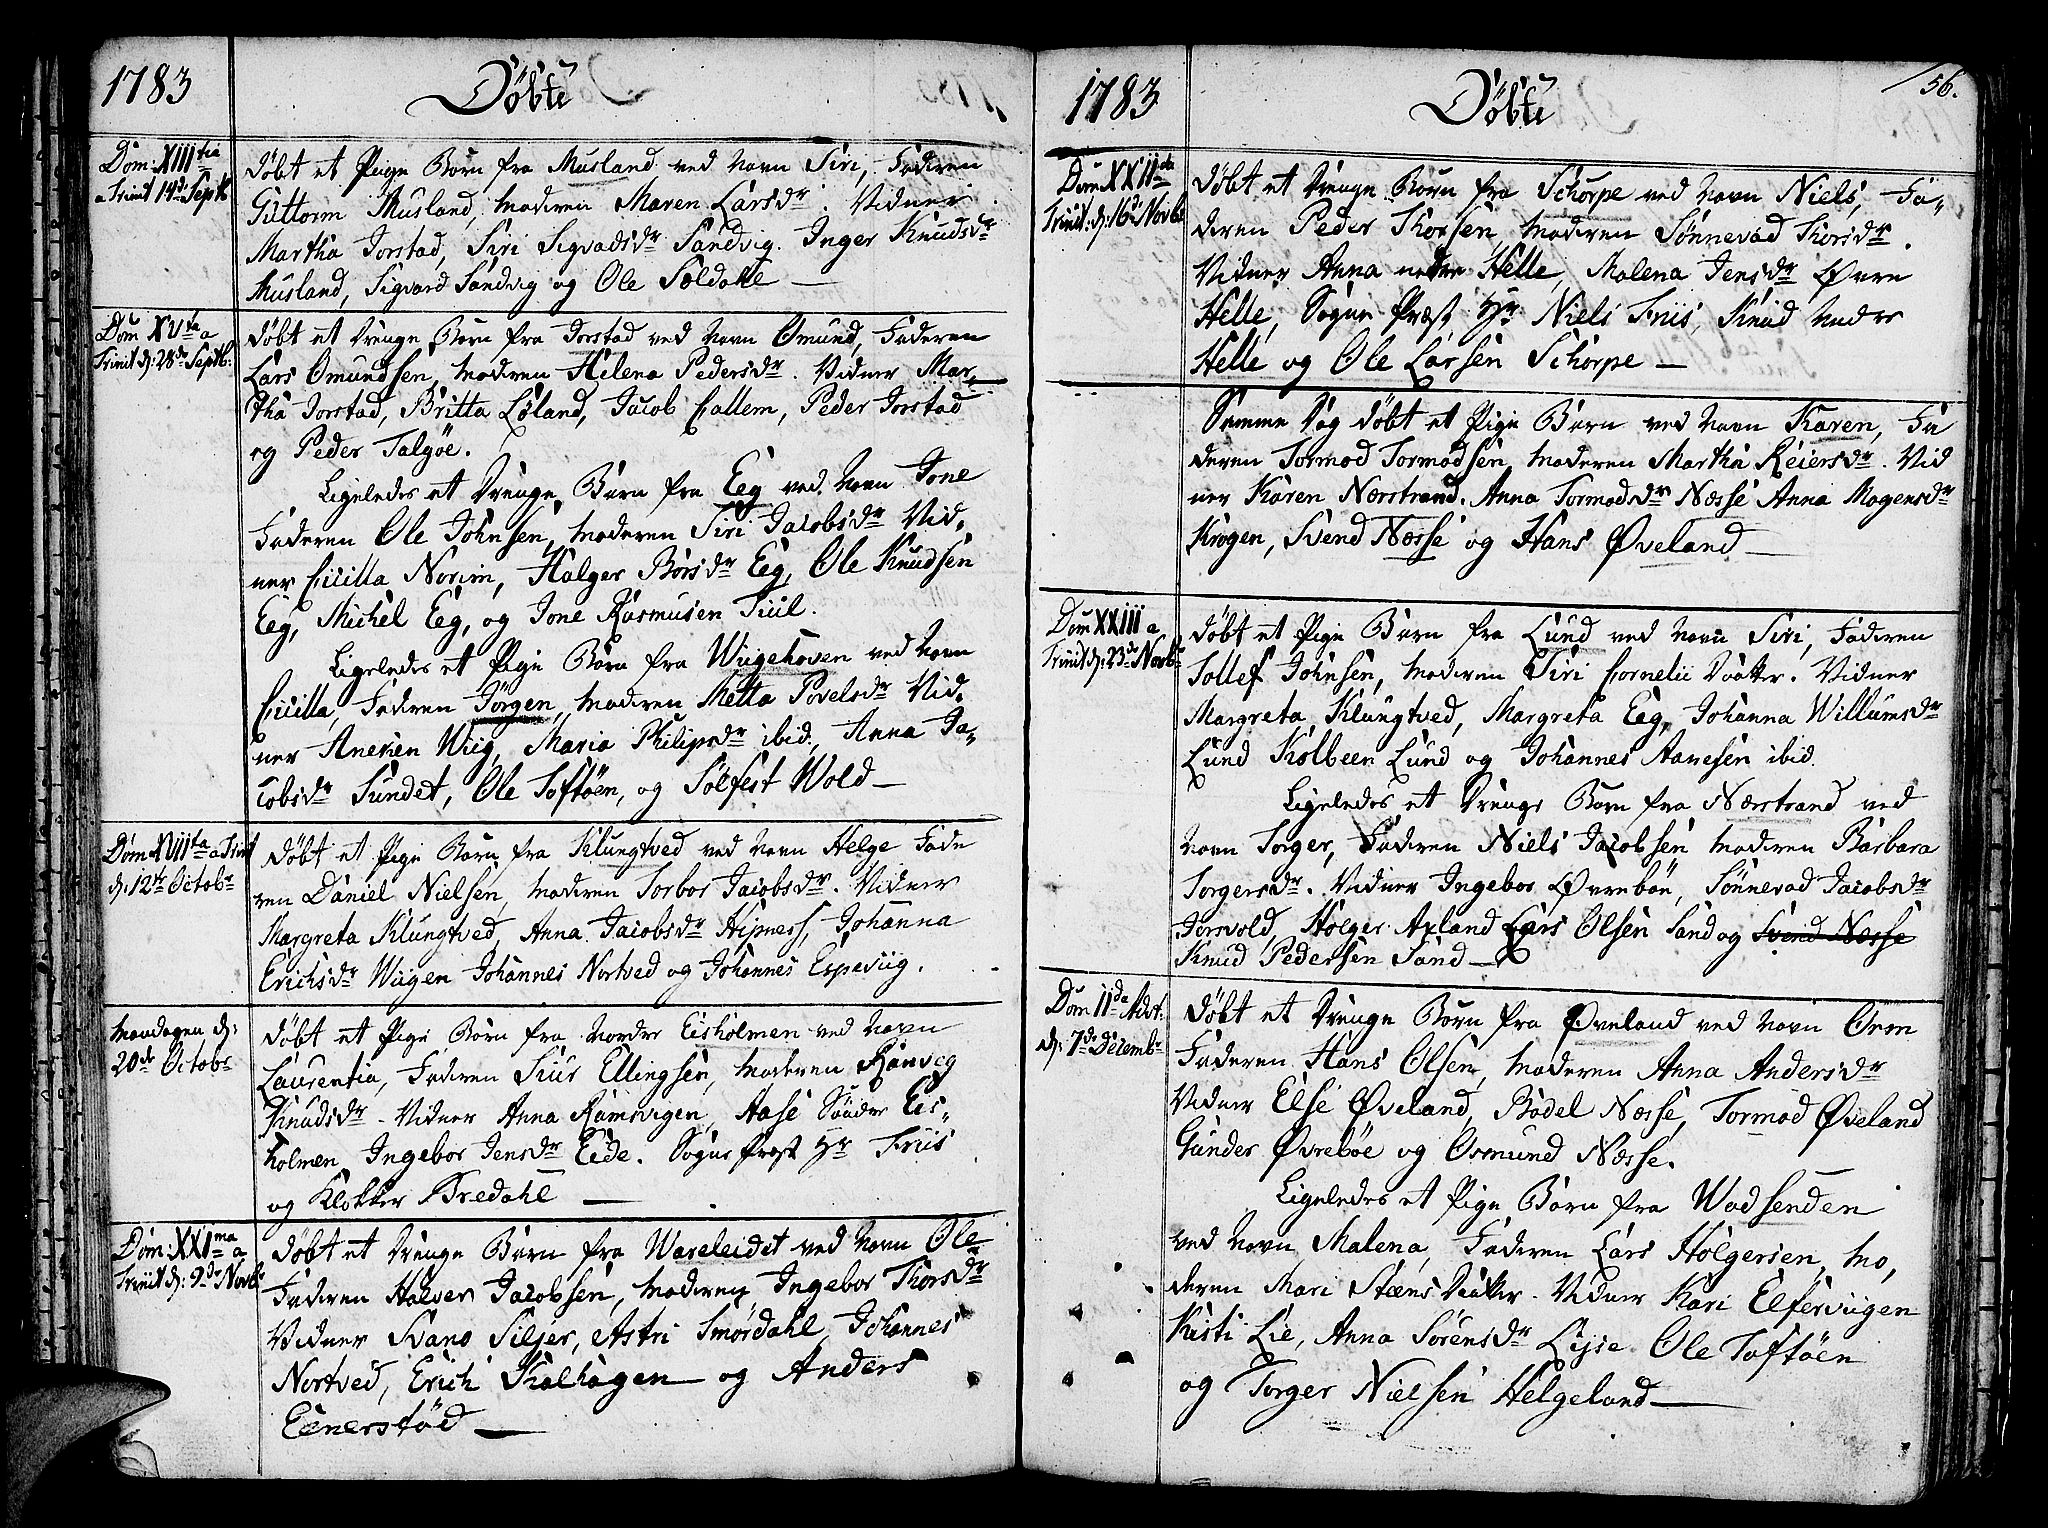 1783
Döbte
Dom: XIIItia
a Trinit 14d Septb
döbt et Pige Barn fra Musland ved Navn Siri, Faderen
Guttorm Musland, Moderen Maren Larsdr. Vidner
Martha Jorstad, Siri Sigvadsdr Sandvig. Inger Knudsdr
Musland, Sigvard Sandvig og Ole Sældahl —
Dom XVta a
Trinit d: 28de Septb:
döbt et Drenge Barn fra Jorstad ved Navn Omund, Faderen
Lars Omundsen, Moderen Helena Pedersdr. Vidner Mar-
tha Jorstad, Britta Löland, Jacob Callem, Peder Jorstad
og Peder Talgöe.
Ligeledes et Drenge Barn fra Eeg ved Navn Jone
Faderen Ole Johnsen, Moderen Siri Jacobsdr Vid-
ner Cicilla Norim, Holger Börsdr Eeg, Ole Knudsen
Eeg, Michel Eeg, og Jone Rasmusen Tuul.
Ligeledes et Pige Barn fra Wiigehoven ved Navn
Cicilla, Faderen Jörgen, Moderen Metta Povelsdr Vid-
ner Aneken Wiig, Maria Philipsdr ibid, Anna Ja-
cobsdr Sundet, Ole Toftöen, og Sölfest Wold —
Dom XVIIta a Trinit
d: 12te Octobr
döbt et Pige Barn fra Klungtved ved Navn Helge Fade
ren Daniel Nielsen, Moderen Torbor Jacobsdr. Vidner
Margreta Klungtved, Anna Jacobsdr Hipness, Johanna
Erichsdr Wiigen Johannes Nortved og Johannes Espeviig.
Mandagen d:
20de Octobr
döbt et Pige Barn fra Nordre Eisholmen ved Navn
Laurentia, Faderen Siur Ellingsen, Moderen Ranveg
Knudsdr. Vidner Anna Ramsvigen, Aase Söndre Eis-
holmen, Ingebor Jensdr Eide. Sogne Præst Hr Friis
og Klokker Bredahl —
Dom: XXIma a
Trinit d: 9de Novb
döbt et Drenge Barn fra Wareleidet ved Navn Ole
Faderen Halver Jacobsen, Moderen Ingebor Thorsdr
Vidner Svano Siljer, Astri Smördahl, Johannes
Nortved, Erich Skalhagen og Anders
Einerstöd —
1783
Döbte
56.
Dom XXIIda
Trinit: d: 16d Novb:
döbt et Drenge Barn fra Schorpe ved Navn Niels, Fa-
deren Peder Thorsen, Moderen Sönnevad Thorsdr.
Vidner Anna nedre Helle, Malena Jensdr Øvre
Helle, Sogne Præst Hr Niels Friis, Knud Nedre
Helle og Ole Larsen Schorpe —
Samme Dag döbt et Pige Barn ved Navn Karen, Fa
deren Tormod Tormodsen, Moderen Martha Reiersdr. Vid
ner Karen Nærstrand. Anna Tormodsdr Næsse Anna Mogensdr
Krogen, Svend Næsse og Hans Øveland —
Dom XXIII a
Trinit d: 23de Novb
döbt et Pige Barn fra Lund ved Navn Siri, Faderen
Tollef Johnsen, Moderen Siri Cornelii Datter. Vidner
Margreta Klungtved, Margreta Eeg, Johanna Willumsdr
Lund Kolbeen Lund og Johannes Aanesen ibid.
Ligeledes et Drenge Barn fra Nærstrand ved
Navn Torger, Faderen Niels Jacobsen Moderen Barbara
Torgersdr. Vidner Ingebor Øvreböe, Sönnevad Jacobsdr
Jorvold, Holger Axland Lars Olsen Sand og Svend Næsse
Knud Pedersen Sand —
Dom IIda Advt.
d: 7de Decembr
döbt et Drenge Barn fra Øveland ved Navn Orm
Faderen Hans Olsen, Moderen Anna Andersdr
Vidner Else Øveland, Bodel Næsse, Tormod Øveland
Gunder Øvreböe og Osmund Næsse.
Ligeledes et Pige Barn fra Wadsenden
ved Navn Malena, Faderen Lars Holgersen, Mo,
deren Mari Steens Datter. Vidner Kari Elfervigen
Kisti Lie, Anna Sörensdr Ole Toftöen
og Torger Nielsen Helgeland —